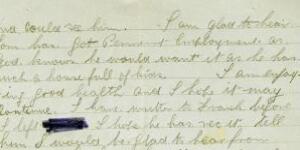 and could see him. I am glad to hear
Tom has got Permnent Employment as
God knows he would want it as he has
such a house full of him. I am enjoy
ing good health and I hope it may
continue. I have written to Frank before
I left I hope he has rec it. tell
him I would be glad to hear from